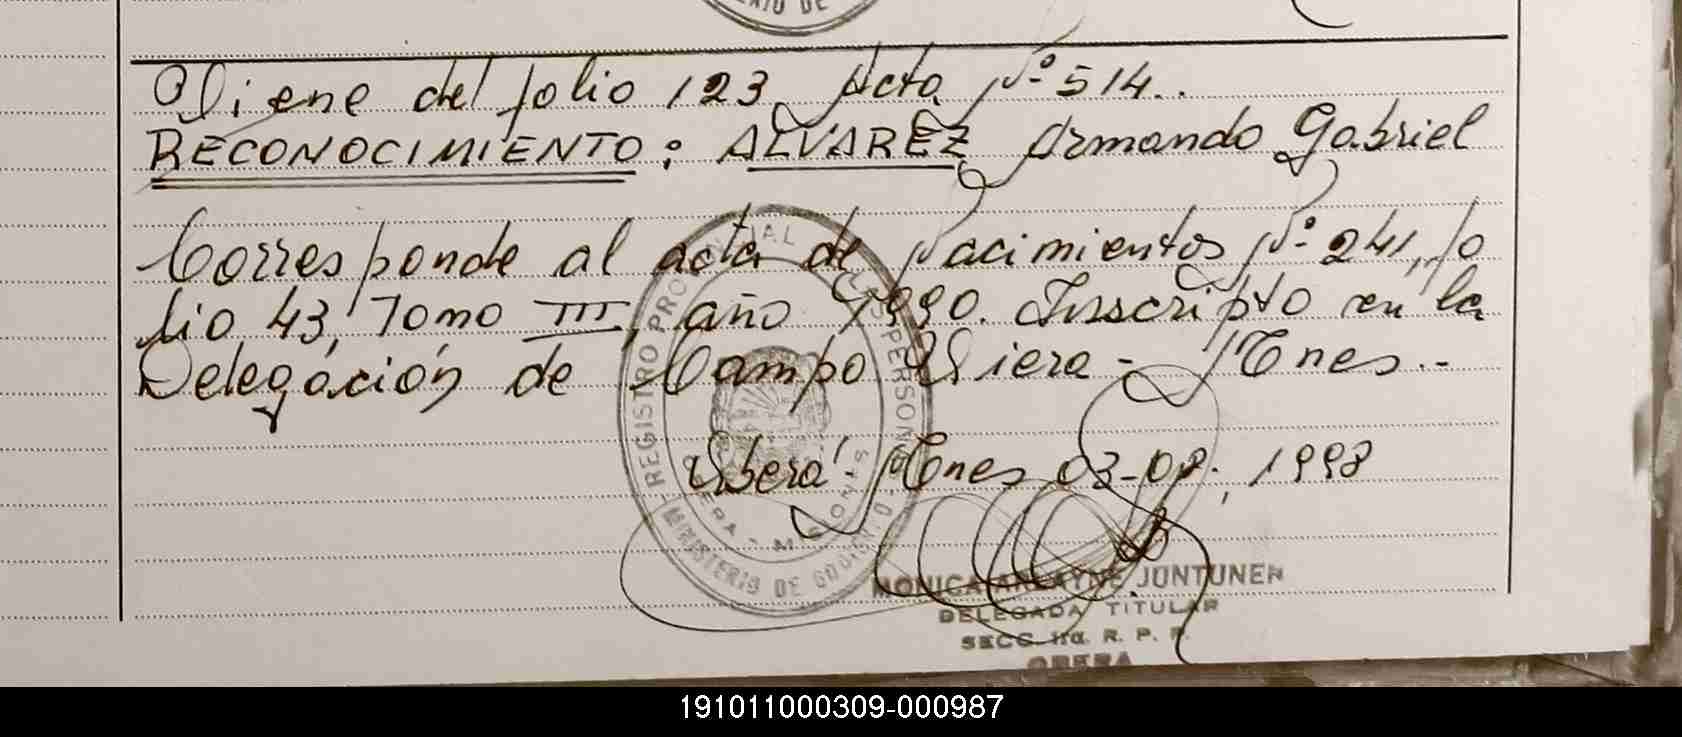 Viene del folio 123, Acta Nº 514..
RECONOCIMIENTO: ALVAREZ, Armando Gabriel
Corresponde al acta de Nacimientos Nº 241, fo
lio 43, Tomo III, año 1990. Inscripto en la
Delegación de Campo Viera - Mnes..
Oberá, Mnes, 03-02, 1998
REGISTRO PROVINCIAL DE LAS PERSONAS
OBERA - MISIONES
MINISTERIO DE GOBIERNO
MONICA JUNTUNEN
DELEGADA TITULAR
SECC. 1ra. R. P. P.
OBERA
191011000309-000987